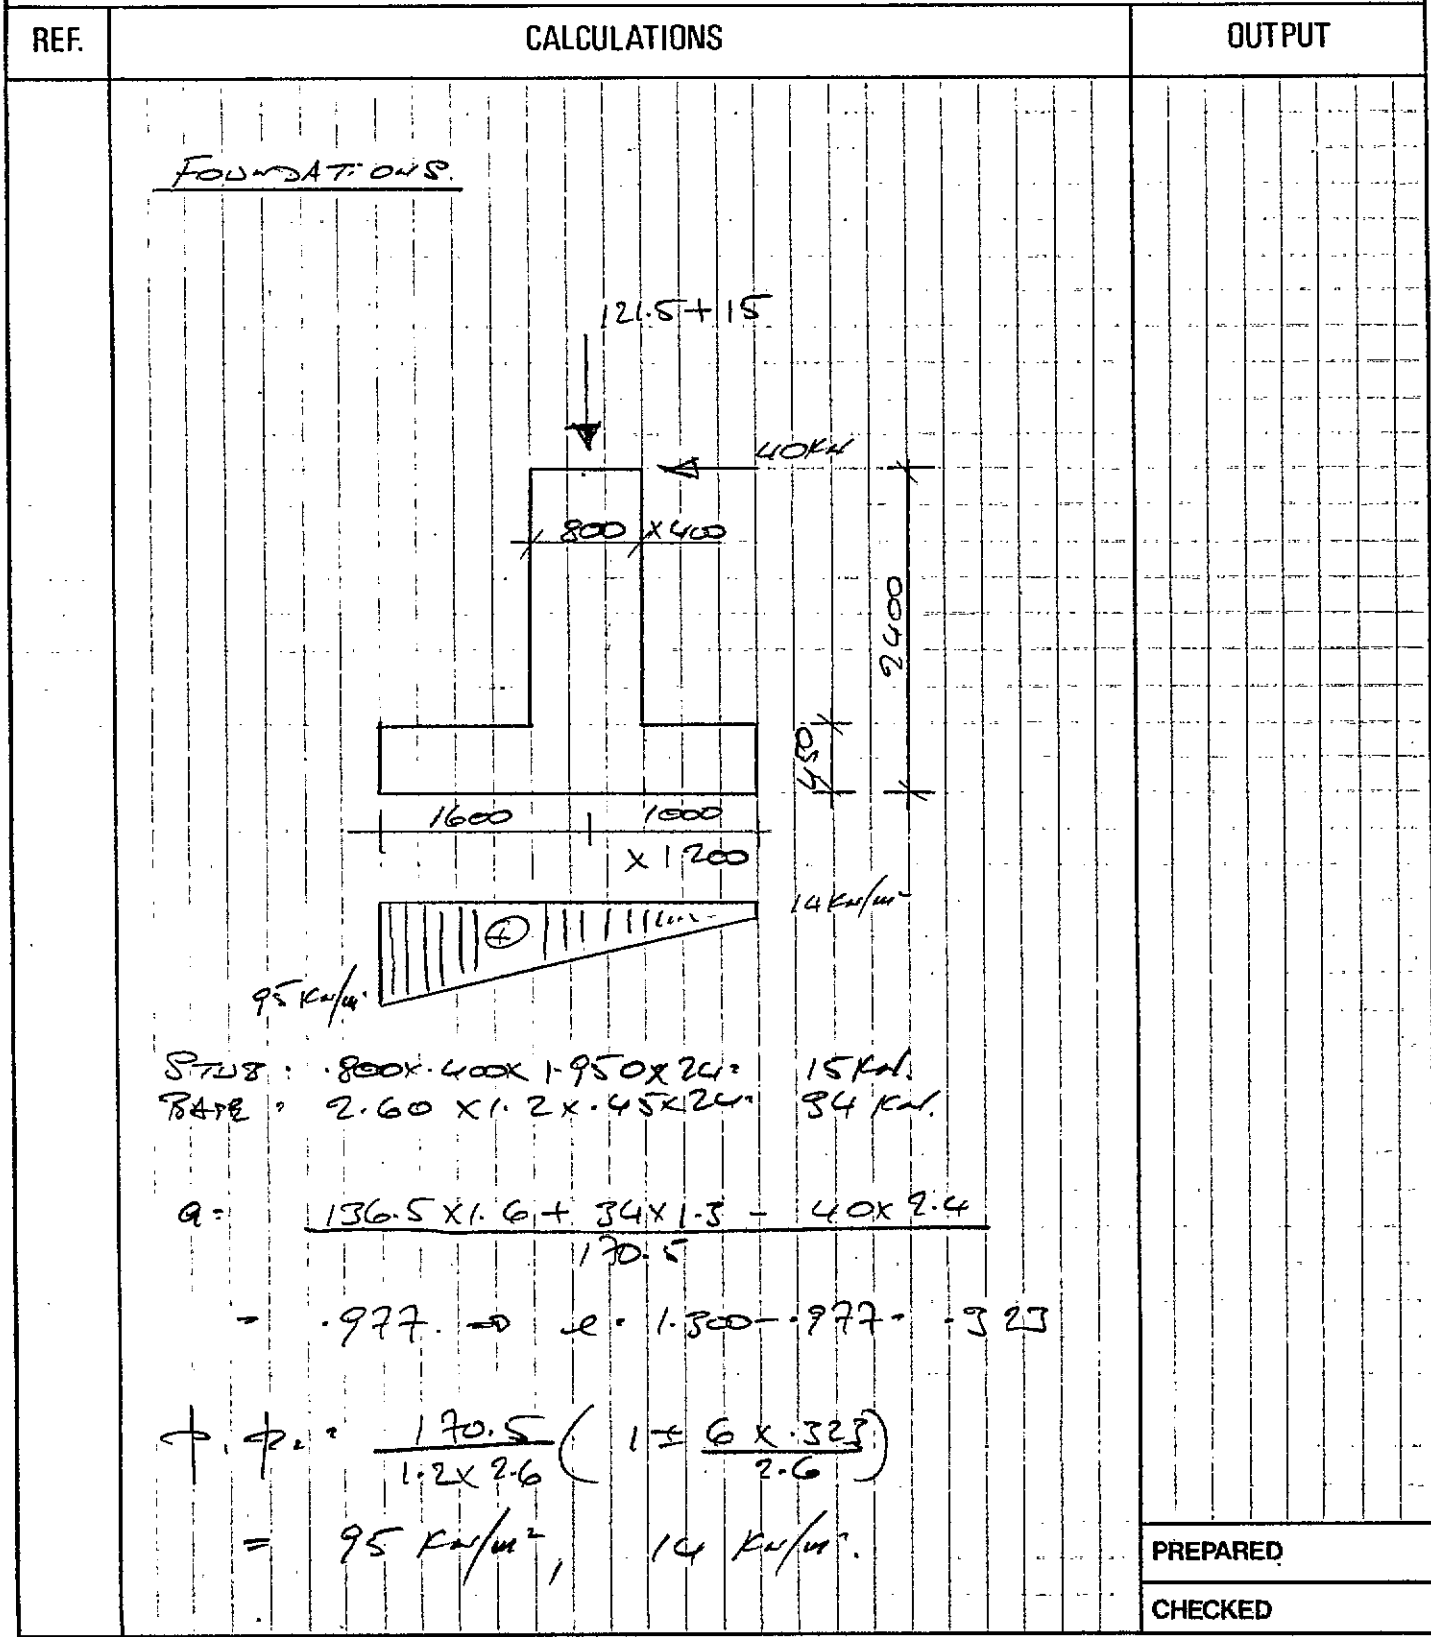 REF. CALCULATIONS OUTPUT
FOUNDATIONS.
121.5 + 15
40KN
800 x 400
2400
450
1600 1000
x 1200
14 KN/m²
95 KN/m²
STUB: .800x.400x 1.950x24= 15KN.
BASE: 2.60 x1.2x.45x24= 34 KN.
a= 136.5 x1.6 + 34x1.3 - 40x2.4
170.5
= .977. ⇒ e = 1.300-.977= .323
p₁ p₂ = 170.5 ( 1 ± 6 x .323 )
1.2x2.6 2.6
= 95 KN/m², 14 KN/m².
PREPARED
CHECKED